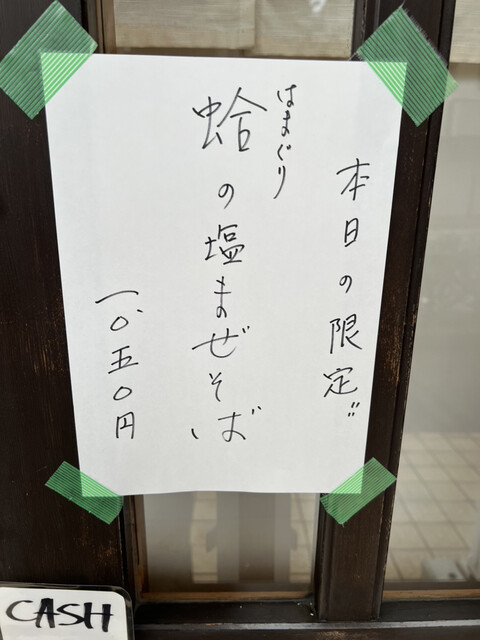 本日の限定!!
はまぐり
蛤の塩まぜそば
一、〇五〇円
CASH